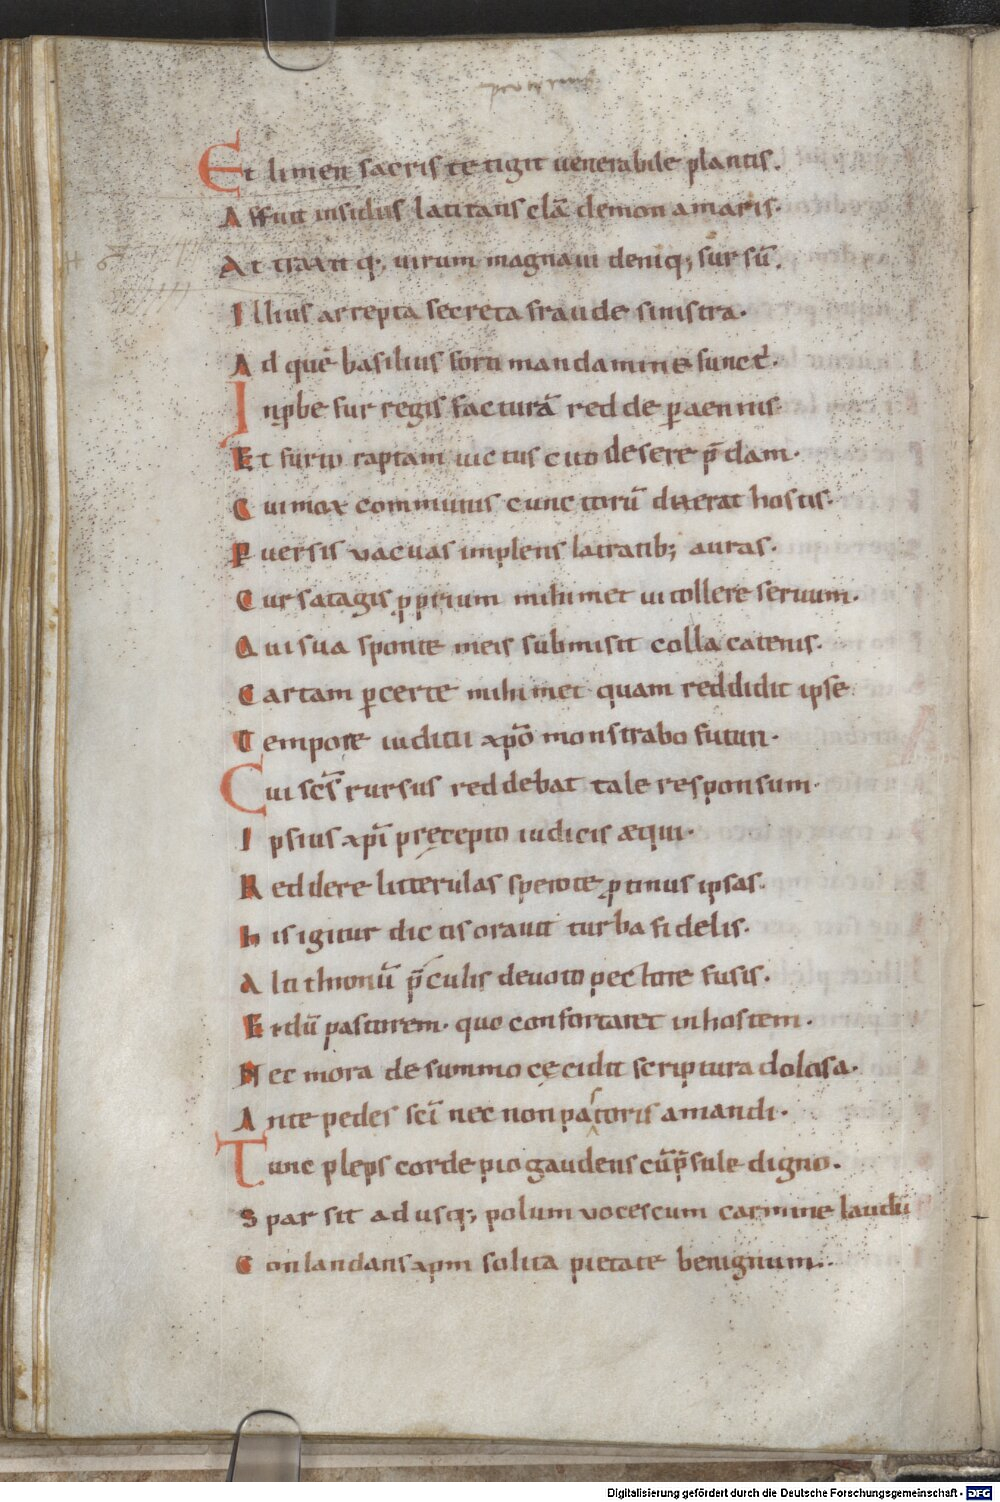 Et limen sacris tetigit uenerabile plantis.
Affuit insidiis latitans clā demon amaris.
Attraxitq; uirum magnaui deniq; sursū.
Illius arrepta secreta fraude sinistra.
Ad quē basilius forti mandamine functꝰ.
Inꝓbe fur regis facturā redde ꝑaennis
Et furto raptam uictus cito desere p̄dam.
Cui mox communis cunctorū dixerat hostis.
Puersis vacuas implens latratib; auras.
Cur satagis ꝓprium mihimet ui tollere seruum.
Qui sua sponte meis submisit colla catenis.
Cartam ꝑcerte mihimet quam reddidit ipse
Tempore iudicii xp̄o monstrabo futuri.
Cui sc̄s rursus reddebat tale responsum.
Ipsius xp̄i pręcepto iudicis æqui.
Reddere litterulas spero te ꝓtinus ipsas.
his igitur dictis orauit turba fidelis.
Altithronū p̄culis deuoto pectore fusis.
Et dū pastorem. quo confortaret in hostem.
Nec mora de summo cęcidit scriptura dolosa.
Ante pedes sc̄i nec non pastoris amandi.
Tunc pleps corde pio gaudens cū p̄sule digno.
Sparsit adusq; polum voces cum carmine laudū
Conlaudans xp̄m solita pietate benignum.
Digitalisierung gefördert durch die Deutsche Forschungsgemeinschaft - DFG